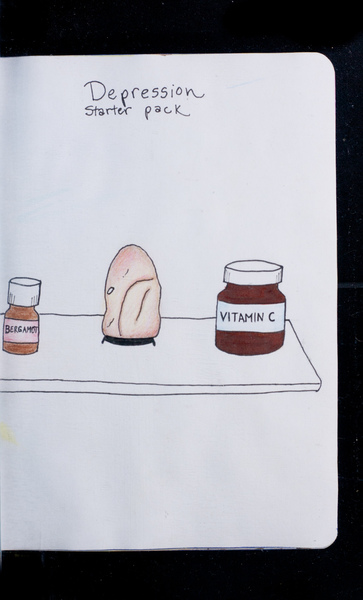 Depression
Starter pack
BERGAMOT
VITAMIN C